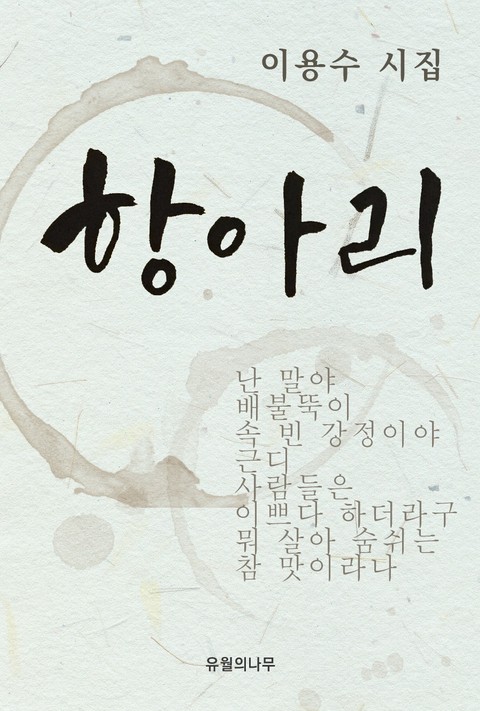 이용수 시집
항아리
난 말야
배불뚝이
속 빈 강정이야
근디
사람들은
이쁘다 하더라구
뭐 살아 숨쉬는
참 맛이라나
유월의나무